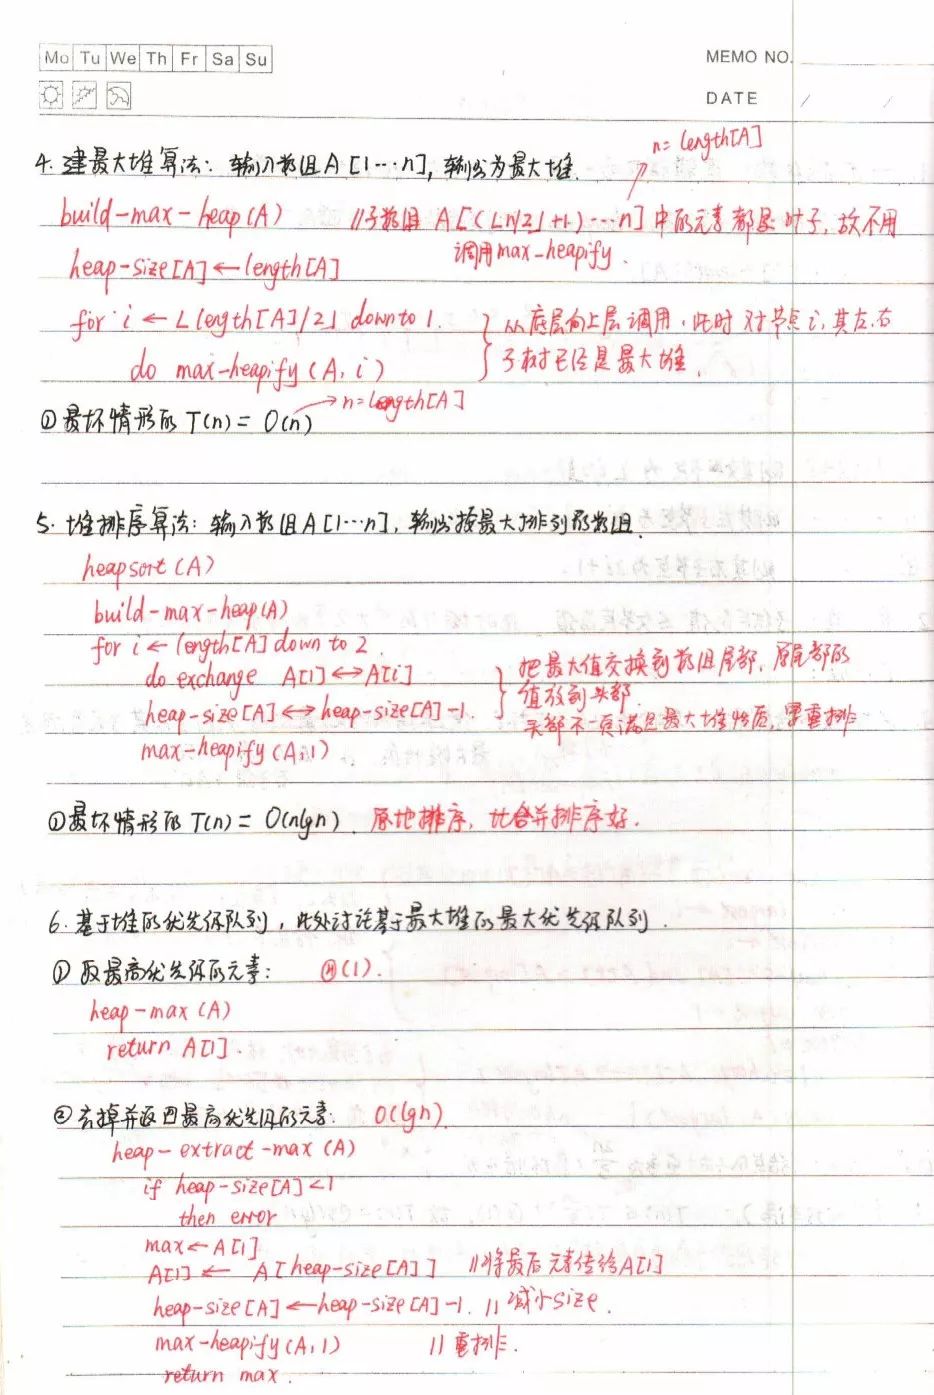 Mo Tu We Th Fr Sa Su
MEMO NO.
DATE / /
n=length[A]
4. 建最大堆算法: 输入数组A[1…n], 输出为最大堆.
build-max-heap(A) //子数组 A[(⌊n/2⌋+1)…n]中的元素都是叶子, 故不用
调用max-heapify.
heap-size[A]←length[A]
for i ← ⌊length[A]/2⌋ downto 1.
do max-heapify(A, i)
从底层向上层调用, 此时对节点i, 其左.右
子树已经是最大堆.
→n=length[A]
①最坏情形的 T(n) = O(n)
5. 堆排序算法: 输入数组A[1…n], 输出按最大排列的数组.
heapsort(A)
build-max-heap(A)
for i←length[A] down to 2.
do exchange A[1]↔A[i]
heap-size[A]↔heap-size[A]-1.
max-heapify(A,1)
把最大值交换到数组尾部, 原尾部的
值放到头部.
头部不一定满足最大堆性质, 需重排
①最坏情形的 T(n) = O(nlgn). 原地排序, 比合并排序好.
6. 基于堆的优先级队列, 此处讨论基于最大堆的最大优先级队列.
① 取最高优先级的元素: Θ(1).
heap-max(A)
return A[1].
②去掉并返回最高优先级的元素: O(lgn).
heap-extract-max(A)
if heap-size[A]<1
then error
max←A[1]
A[1] ← A[heap-size[A]] //将最后元素传给A[1]
heap-size[A]←heap-size[A]-1. // 减小size.
max-heapify(A,1) // 重排.
return max.